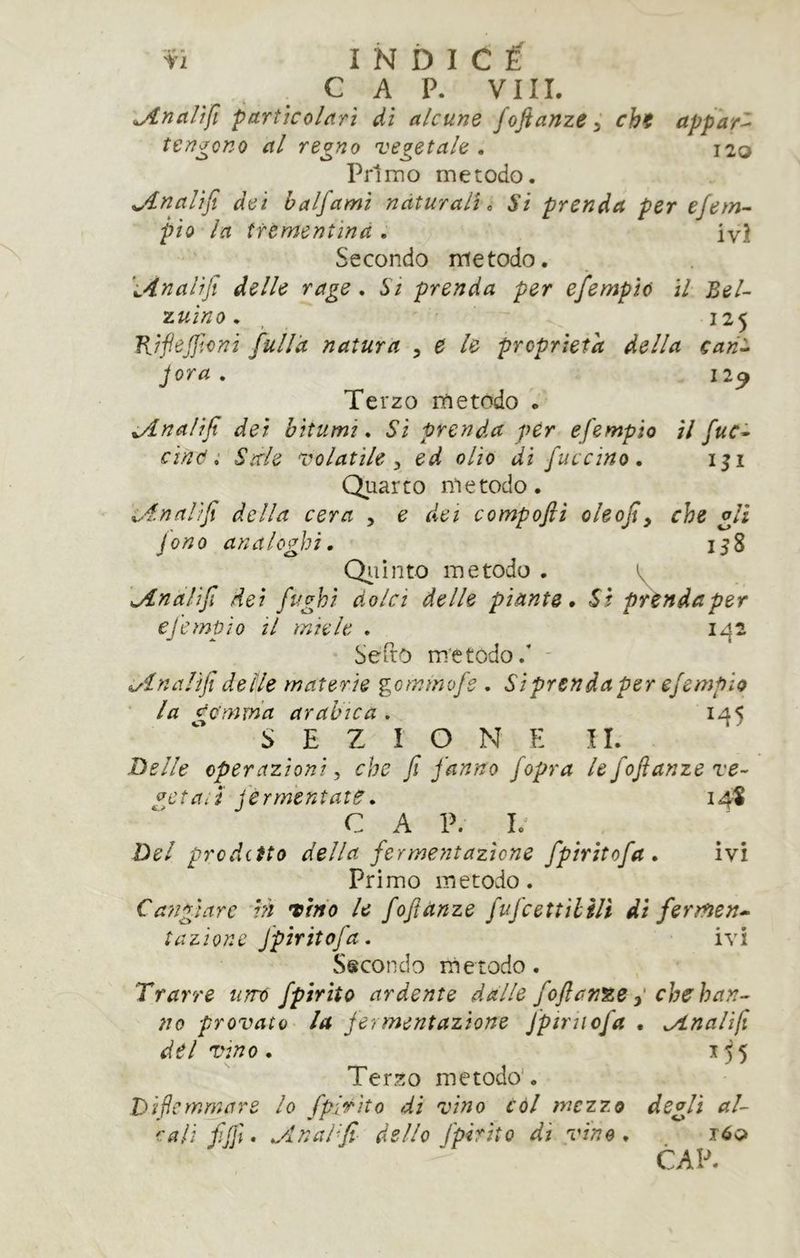 vi INDICÉ
CAP. VIII.
Analiſi particolari di alcune ſoſtanze, che appar-
tengono al regno vegetale . 120
Primo metodo.
Analiſi dei balſami naturali. Si prenda per eſem-
pio la trementina . ivi
Secondo metodo.
Analiſi delle rage . Si prenda per eſempio il Bel-
zuino . 125
Rifleſſioni ſulla natura , e le proprietà della can-
fora . 129
Terzo metodo .
Analiſi dei bitumi. Si prenda per eſempio il ſuc-
cino . Sale volatile , ed olio di ſuccino . 131
Quarto metodo.
Analiſi della cera , e dei compoſti oleoſi, che gli
ſono analoghi. 138
Quinto metodo .
Analiſi dei ſughi dolci delle piante . Si prenda per
eſempio il miele . 142
Seſto metodo.
Analiſi delle materie gommoſe . Si prenda per eſempio
la gomma arabica . 145
SEZIONE II.
Delle operazioni , che ſi fanno ſopra le ſoſtanze ve-
getali fermentate. 148
CAP. I.
Del prodotto della fermentazione ſpiritoſa . ivi
Primo metodo.
Cangiare in vino le ſoſtanze ſuſcettibili di fermen-
tazione ſpiritoſa . ivi
Secondo metodo .
Trarre uno ſpirito ardente dalle ſoſtanze , che han-
no provato la fermentazione ſpiritoſa . Analiſi
del vino . 155
Terzo metodo .
Diflemmare lo ſpirito di vino col mezzo degli al-
cali fiſſi . Analiſi dello ſpirito di vino . 160
CAP.